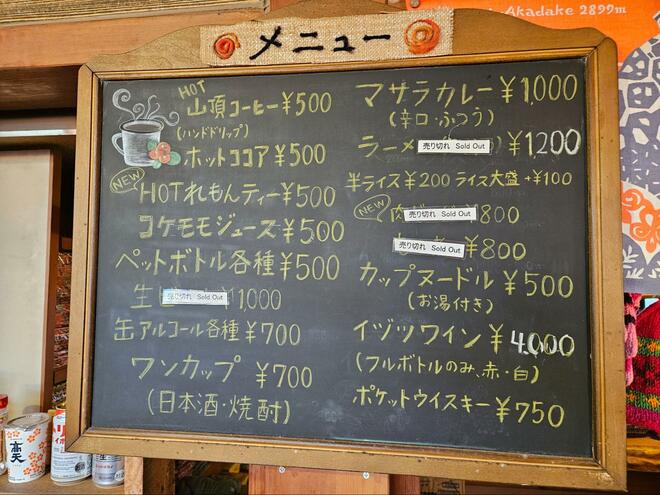 Akadake 2899m
メニュー
HOT
山頂コーヒー ¥500
(ハンドドリップ)
ホットココア ¥500
NEW
HOTれもんティー ¥500
コケモモジュース ¥500
ペットボトル各種 ¥500
生 売り切れ Sold Out 1,000
缶アルコール各種 ¥700
ワンカップ ¥700
(日本酒・焼酎)
マサラカレー ¥1,000
(辛口・ふつう)
ラーメ 売り切れ Sold Out ¥1200
半ライス ¥200 ライス大盛 +¥100
NEW
肉 売り切れ Sold Out 800
売り切れ Sold Out ¥800
カップヌードル ¥500
(お湯付き)
イヅツワイン ¥4,000
(フルボトルのみ、赤・白)
ポケットウイスキー ¥750
高天